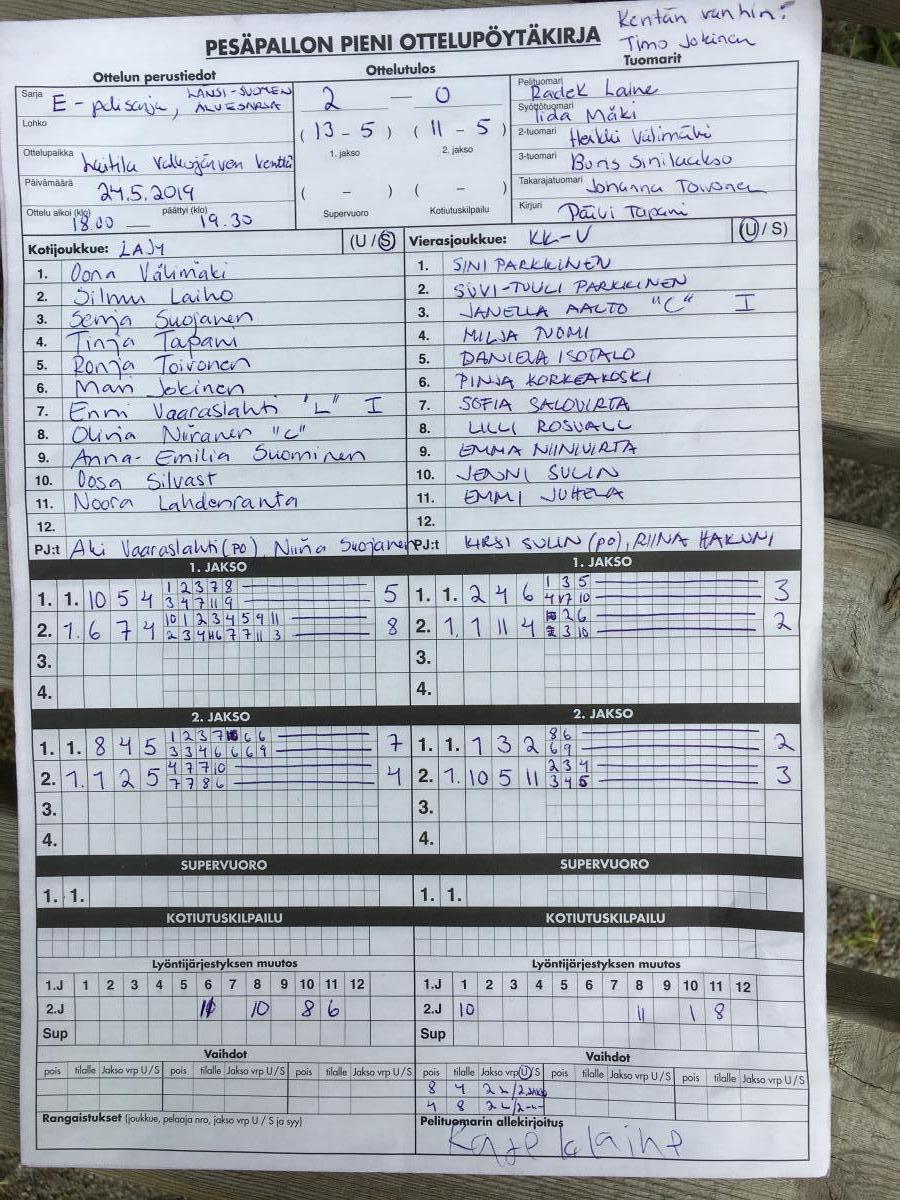 Kentän vanhin:
Timo Jokinen
PESÄPALLON PIENI OTTELUPÖYTÄKIRJA
Ottelun perustiedot
Ottelutulos
Tuomarit
Sarja E - pelisarja, LÄNSI-SUOMEN ALUESARJA
2 — 0
Pelituomari Radek Laine
Syöttötuomari Iida Mäki
Lohko
(13 - 5) (11 - 5)
1. jakso 2. jakso
2-tuomari Heikki Välimäki
Ottelupaikka Laitila Valkojärven kenttä
3-tuomari Boris Sinilaakso
Päivämäärä 24.5.2019
( - ) ( - )
Takarajatuomari Johanna Toivonen
Ottelu alkoi (klo) 18.00 — päättyi (klo) 19.30
Supervuoro Kotiutuskilpailu
Kirjuri Päivi Tapani
Kotijoukkue: LAJY (U / S)
Vierasjoukkue: KK-V (U / S)
1. Oona Välimäki
2. Silmu Laiho
3. Senja Suojanen
4. Tinja Tapani
5. Ronja Toivonen
6. Mari Jokinen
7. Enni Vaaraslahti "L" I
8. Olivia Niiranen "C"
9. Anna-Emilia Suominen
10. Oosa Silvast
11. Noora Lahdenranta
12.
PJ:t Aki Vaaraslahti (PO), Niina Suojanen
1. SINI PARKKINEN
2. SUVI-TUULI PARKKINEN
3. JANELLA AALTO "C" I
4. MILJA TUOMI
5. DANIELA ISOTALO
6. PINJA KORKEAKOSKI
7. SOFIA SALOVIRTA
8. LILLI ROSVALL
9. EMMA NIINIVIRTA
10. JENNI SULIN
11. EMMI JUHELA
12.
PJ:t KIRSI SULIN (PO), RIINA HAKUNI
1. JAKSO
1. 1. 10 5 4 1 2 3 7 8 5
3 4 7 11 9
2. 1. 6 7 4 10 1 2 3 4 5 9 11 8
2 3 4 6 7 7 11 3
3.
4.
1. JAKSO
1. 1. 2 4 6 1 3 5 3
4 7 10
2. 1. 1 11 4 2 6 2
3 10
3.
4.
2. JAKSO
1. 1. 8 4 5 1 2 3 7 6 6 7
3 3 4 6 6 6 9
2. 1. 1 2 5 4 7 7 10 4
7 7 8 6
3.
4.
2. JAKSO
1. 1. 7 3 2 8 6 2
6 9
2. 1. 10 5 11 2 3 4 3
3 4 5
3.
4.
SUPERVUORO
1. 1.
SUPERVUORO
1. 1.
KOTIUTUSKILPAILU
KOTIUTUSKILPAILU
Lyöntijärjestyksen muutos
1.J 1 2 3 4 5 6 7 8 9 10 11 12
2.J 11 10 8 6
Sup
Lyöntijärjestyksen muutos
1.J 1 2 3 4 5 6 7 8 9 10 11 12
2.J 10 11 1 8
Sup
Vaihdot
pois tilalle Jakso vrp U / S pois tilalle Jakso vrp U / S pois tilalle Jakso vrp U / S
Vaihdot
pois tilalle Jakso vrp U / S pois tilalle Jakso vrp U / S pois tilalle Jakso vrp U / S
8 4
4 8
Rangaistukset (joukkue, pelaaja nro, jakso vrp U / S ja syy)
Pelituomarin allekirjoitus